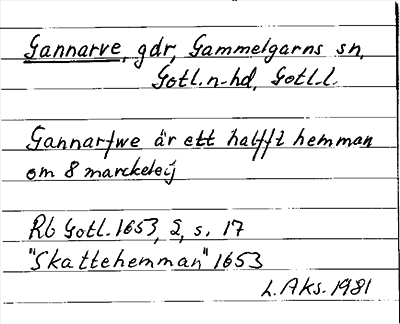 Gannarve, gdr, Gammelgarns sn,
Gotl.n.hd, Gotl.l.
Gannarfwe är ett halfft hemman
om 8 marckeleij
Rb Gotl. 1653, 2, s. 17
"Skattehemman" 1653
L. Aks. 1981